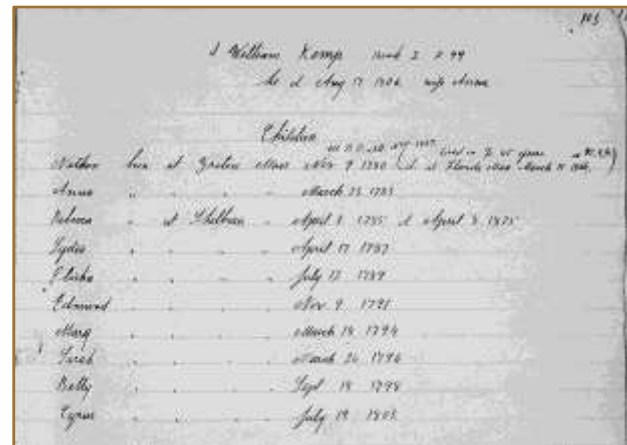 103
William Kemp Book 2 P 99
He d Aug 17 1806 wife Anna
Children
Nathan born at Groton Mass Nov 9 1780 d at Florida Mass March
Anna " " " March 23 1783
Rebecca " at Shelburn April 8 1785 d April 3 1875
Lydia " " " April 17 1787
" " " July 17 1789
Edmund " " " Nov 9 1791
Mary " " " March 18 1794
Sarah " " " March 26 1796
Betty " " " Sept 18 1798
Cyrus " " " July 19 1803